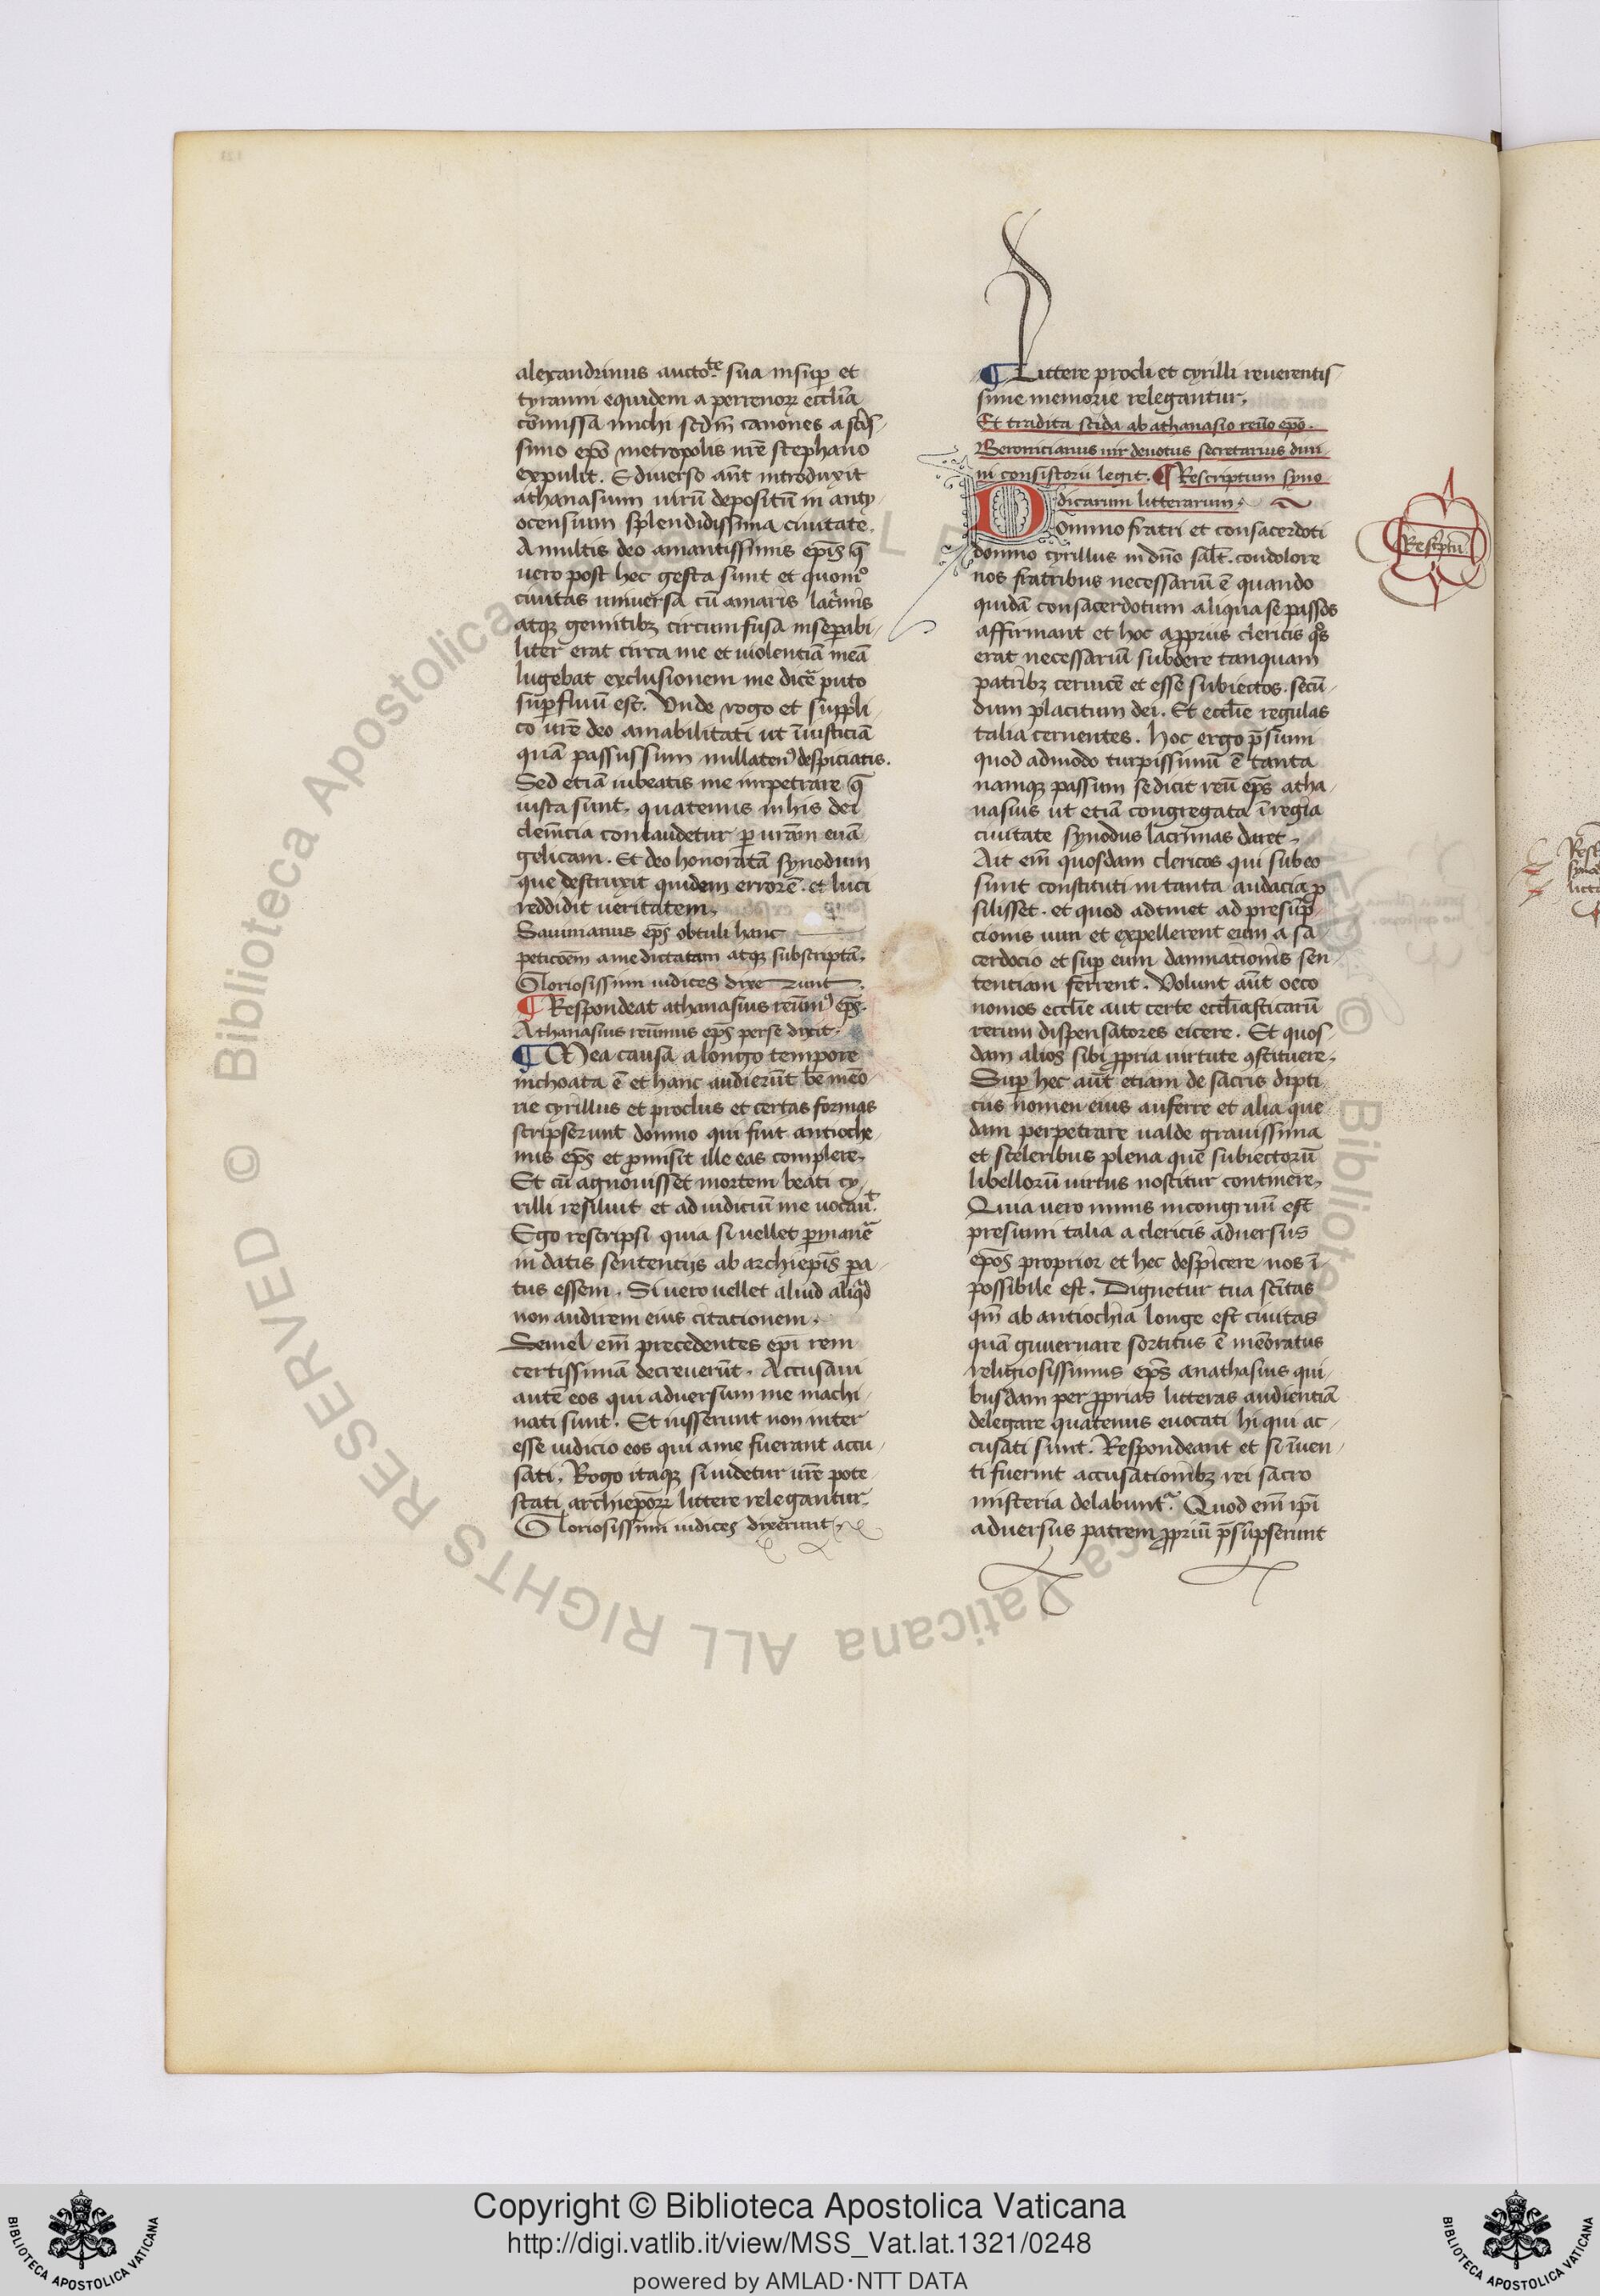 alexandrinus aucto.te sua insup̄ et
tyrannı equidem a perrenoꝝ eccl̄ia
co̅missa michi sed̅m canones a sc̄is-
simo ep̄o metropolis nr̄e stephano
expulit. E diverso aūt introduxit
athanasium uirū depositū in anty-
ocensium splendidissima ciuitate.
A multis deo amantissimis ep̄is q̄
uero post hec gesta sunt et quomº
ciuitas uniuersa cū amaris lac̄mis
atqꝫ gemitibꝫ circumfusa inseꝑabi-
liter erat circa me et uiolentiā meā
lugebat exclusionem me dicē puto
suꝑfluū est. Unde rogo et suppli-
co ur̄e deo amabilitati ut ī̄usticiā
quā passus sum nullaten⁹ despiciatis.
Sed etiā iubeatis me impetrare q̄
iusta sunt. quatenus in his dei
clem̄cia conlaudetur ꝑ urām euā-
gelicam. Et deo honoratā synodum
que destruxit quidem errorē. et luci
reddidit ueritatem.
Sauinianus ep̄s obtuli hanc
peticōem a me dictatam atqꝫ subscriptā.
Gloriosissimi iudices dixe runt.
¶ Respondeat athanasius reūm⁹ ep̄s.
Athanasius reūmus ep̄s per se dixit.
¶ Mea causa a longo tempore
inchoata ē et hanc audierūt be̅ meō-
rie cyrillus et proclus et certas formas
scripserunt domno qui fuit antioche-
nus ep̄s et ꝓmisit ille eas complere.
Et cū agnouisset mortem beati cy-
rilli resiluit et ad iudiciū me uocaūt.
Ego rescripsi quia si uellet ꝑmanē
in datis sententijs ab archiep̄is pa-
tus essem. Si uero uellet aliud aliq̇d
non audirem eius citationem.
Semel em̄ precedentes ep̄i rem
certissimā decreuerūt. Accusaui
autē eos qui aduersum me machi-
nati sunt. Et iusserunt non inter
esse iudicio eos qui a me fuerant accu-
sati. Rogo itaqꝫ si uidetur ur̄e pote-
stati archiep̄oꝝ littere relegantur.
Gloriosissimi iudices dixerunt.
¶ Littere procli et cyrilli reuerentis-
sime memorie relegantur.
Et tradita scida ab athanasio reūo ep̄o.
Beronicianus uir deuotus secretarius diui-
ni consistorii legit. ¶ Rescriptum syno-
dicarum litterarum.
Domino fratri et consacerdoti
domno cyrillus in dn̄o salt̄. condolore
nos fratribus necessariū ē quando
quidā consacerdotum aliqua se passos
affirmant et hoc a ꝓpriis clericis q̊s
erat necessariū subdere tanquam
patribꝫ ceruicē et esse subiectos. secū-
dum placitum dei. Et eccl̄ie regulas
talia cernentes. hoc ergo p̄sumi
quod admodo turpissimū ē tanta
namqꝫ passum se dicit reū ep̄s atha-
nasius ut etiā congregata ī regia
ciuitate synodus lacrimas daret.
Ait em̄ quosdam clericos qui sub eo
sunt constituti in tanta audacia ꝓ-
silisset. et quod adtinet ad presūp-
cionis uim et expellerent eum a sa-
cerdocio et suꝑ eum damnationis sen-
tentiam ferrent. Uolunt aūt oeco-
nomos eccl̄ie aut certe eccl̄iasticarū
rerum dispensatores eicere. Et quos-
dam alios sibi ꝓpria uirtute ꝯstituere.
Suꝑ hec aūt etiam de sacris dipti-
cus nomen eius auferre et alia que-
dam perpetrare ualde grauissima
et sceleribus plena quē subiectorū
libellorū uirtus noscitur continere.
Quia uero nimis incongruū est
presumi talia a clericis aduersus
ep̄os proprioꝝ et hec despicere nos ī-
possibile est. Dignetur tua sc̄itas
qm̄ ab antiochia longe est ciuitas
quā guuernare sortitus ē meōratus
religiosissimus ep̄s anathasius qui-
busdam per ꝓprias litteras audientiā
delegare quatenus euocati hi qui ac-
cusati sunt. Respondeant et si īuen-
ti fuerint accusationibꝫ rei sacro
misteria delabunt.ͬ Quod em̄ ip̄i
aduersus patrem ꝓpriū p̄sūpserunt
Resc̄ptū
Copyright © Biblioteca Apostolica Vaticana
http://digi.vatlib.it/view/MSS_Vat.lat.1321/0248
powered by AMLAD·NTT DATA
BIBLIOTECA APOSTOLICA VATICANA
BIBLIOTECA APOSTOLICA VATICANA